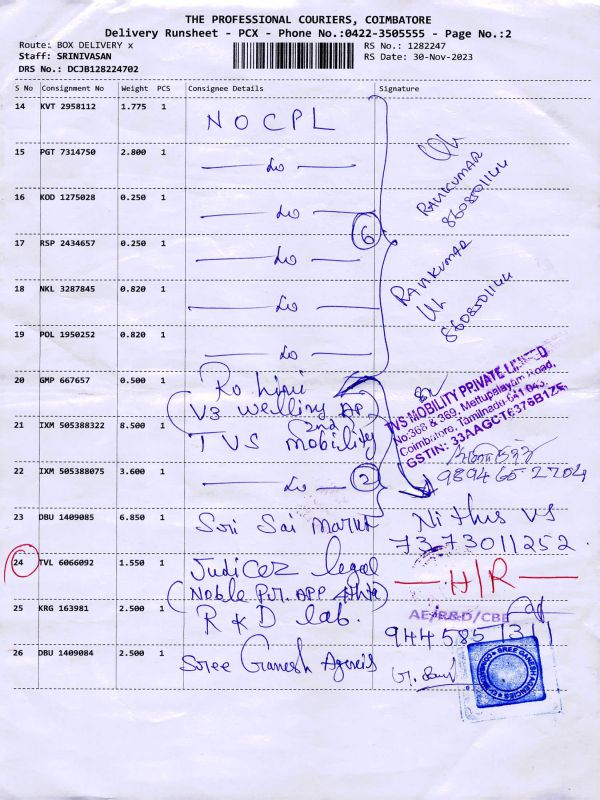 THE PROFESSIONAL COURIERS, COIMBATORE
Delivery Runsheet - PCX - Phone No.:0422-3505555 - Page No.:2
Route: BOX DELIVERY x
RS No.: 1282247
Staff: SRINIVASAN
RS Date: 30-Nov-2023
DRS No.: DCJB128224702
S No Consignment No Weight PCS Consignee Details Signature
14 KVT 2958112 1.775 1 NOCPL
15 PGT 7314750 2.800 1
RAMKUMAR
8608501144
16 KOD 1275028 0.250 1
6
17 RSP 2434657 0.250 1
RAMKUMAR
8608501144
18 NKL 3287845 0.820 1
19 POL 1950252 0.820 1
20 GMP 667657 0.500 1 Rohini
V3 welling AP
2nd
TVS MOBILITY PRIVATE LIMITED
No.368 & 369, Mettupalayam Road,
Coimbatore, Tamilnadu-641 043.
GSTIN: 33AAGCT6376B1ZE
21 IXM 505388322 8.500 1 TVS mobility
22 IXM 505388075 3.600 1
2
9894652704
23 DBU 1409085 6.850 1 Sri Sai Maruti
7373011252
24 TVL 6066092 1.550 1 Judicez legal
H/R
(Noble Pvt. APP 4th
25 KRG 163981 2.500 1 R & D lab.
AE/R&D/CBE
26 DBU 1409084 2.500 1 Sree Ganesh Agencis
SREE GANESH AGENCIES